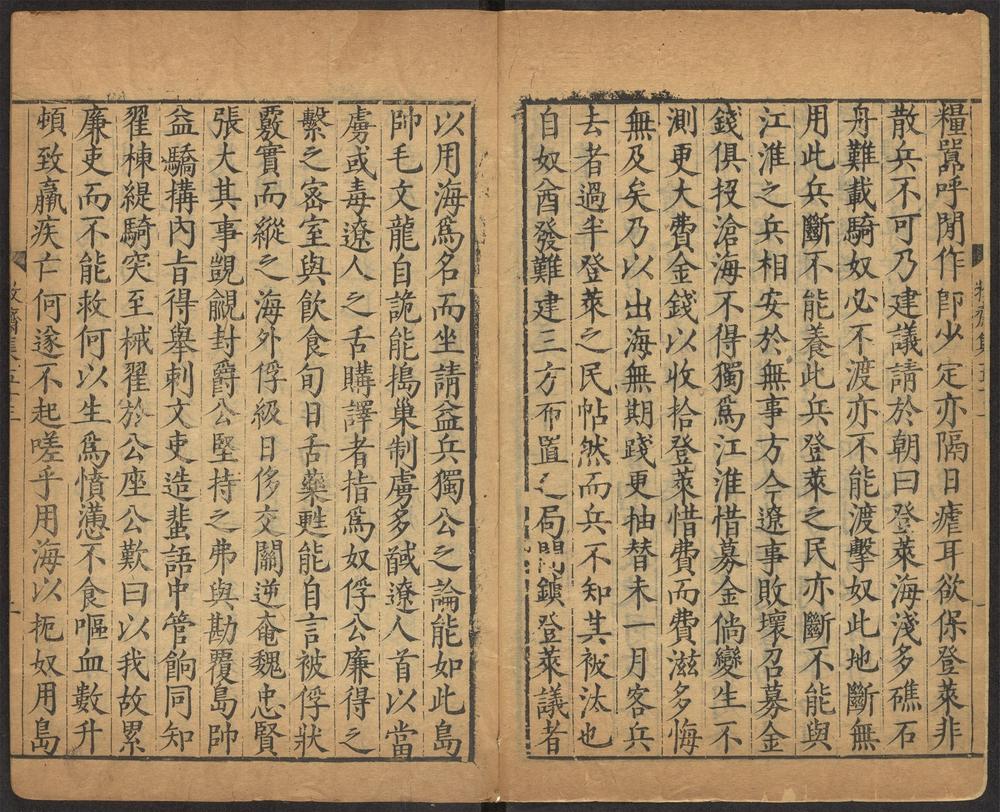 糧嚣呼閒作卽少定亦隔日瘧耳欲保登萊非
散兵不可乃建議請於朝曰登萊海淺多礁石
舟難載騎奴必不渡亦不能渡擊奴此地斷無
用此兵斷不能養此兵登萊之民亦斷不能與
江淮之兵相安於無事方今遼事敗壞召募金
錢俱投滄海不得獨爲江淮惜募金倘變生不
測更大費金錢以收拾登萊惜費而費滋多悔
無及矣乃以出海無期踐更抽替未一月客兵
去者過半登萊之民帖然而兵不知其被汰也
自奴酋發難建三方布置之局開鎮登萊議者
以用海爲名而坐請益兵獨公之論能如此島
帥毛文龍自詭能搗巢制虜多馘遼人首以當
虜或毒遼人之舌購譯者指爲奴俘公廉得之
繫之密室與飲食旬日舌藥甦能自言被俘狀
覈實而縱之海外俘級日侈交關逆奄魏忠賢
張大其事覬覦封爵公堅持之弗與勘覆島帥
益驕搆內旨得舉刺文吏造蜚語中管餉同知
翟棟緹騎突至械翟於公座公歎曰以我故累
廉吏而不能救何以生爲憤懣不食嘔血數升
頓致羸疾亡何遂不起嗟乎用海以扼奴用島
牧齋集五十
牧齋集五十三